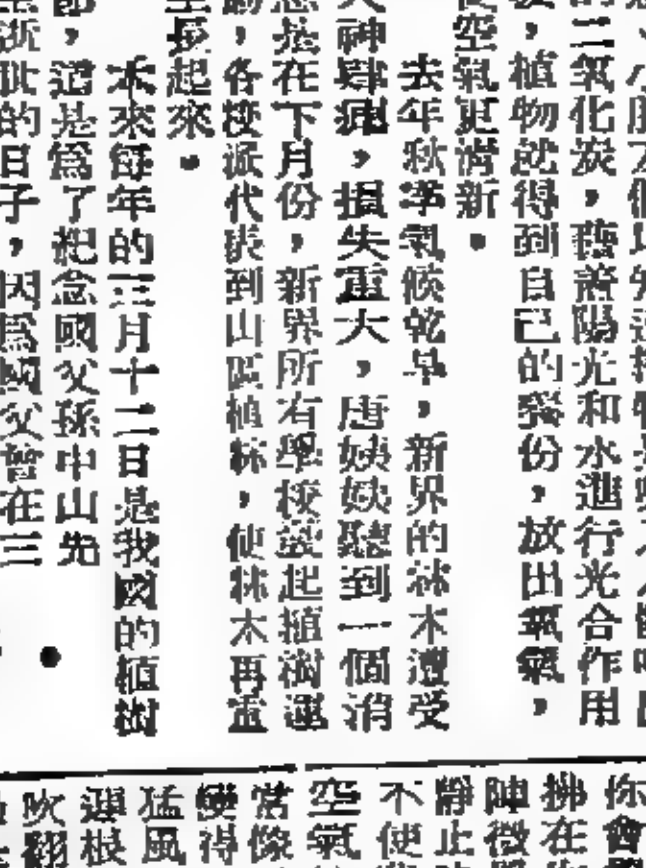 的二氧化炭，藉着陽光和水進行光合作用
植物就得到自己的養份，放出氧氣，
使空氣更清新。
去年秋季氣候乾旱，新界的林木遭受
火神肆虐，損失重大，唐姨姨聽到一個消
息是在下月份，新界所有學校發起植樹運
動，各校派代表到山區植林，使林木再重
長起來。
本來每年的三月十二日是我國的植樹
節，這是為了紀念國父孫中山先
逝世的日子，因為國父曾在三
你會
拂在
陣微
靜止
不使
空氣
常像
變得
猛風
連根
吹翻